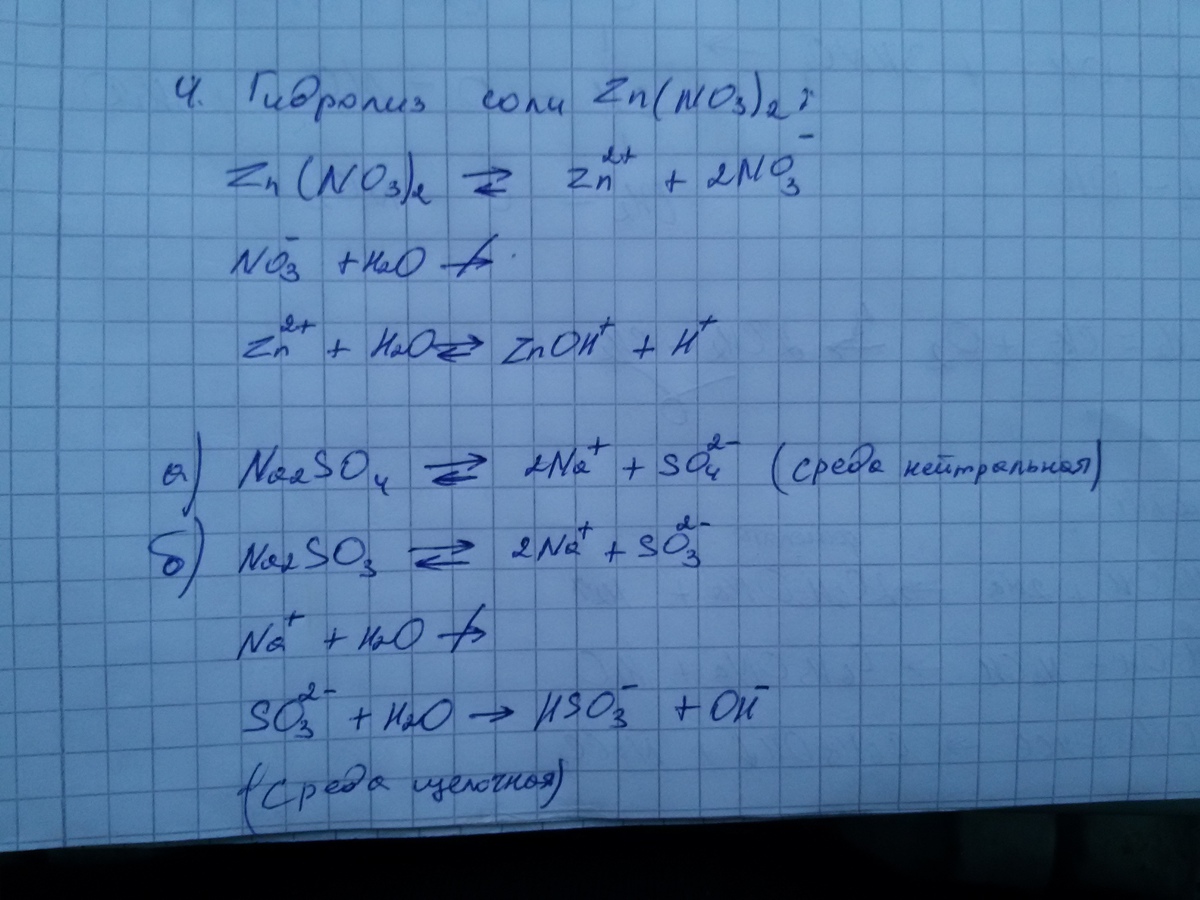 4. Гидролиз соли Zn(NO₃)₂:
Zn(NO₃)₂ ⇄ Zn²⁺ + 2NO₃⁻
NO₃⁻ + H₂O ↛
Zn²⁺ + H₂O ⇄ ZnOH⁺ + H⁺
а) Na₂SO₄ ⇄ 2Na⁺ + SO₄²⁻ (среда нейтральная)
б) Na₂SO₃ ⇄ 2Na⁺ + SO₃²⁻
Na⁺ + H₂O ↛
SO₃²⁻ + H₂O → HSO₃⁻ + OH⁻
(Среда щелочная)